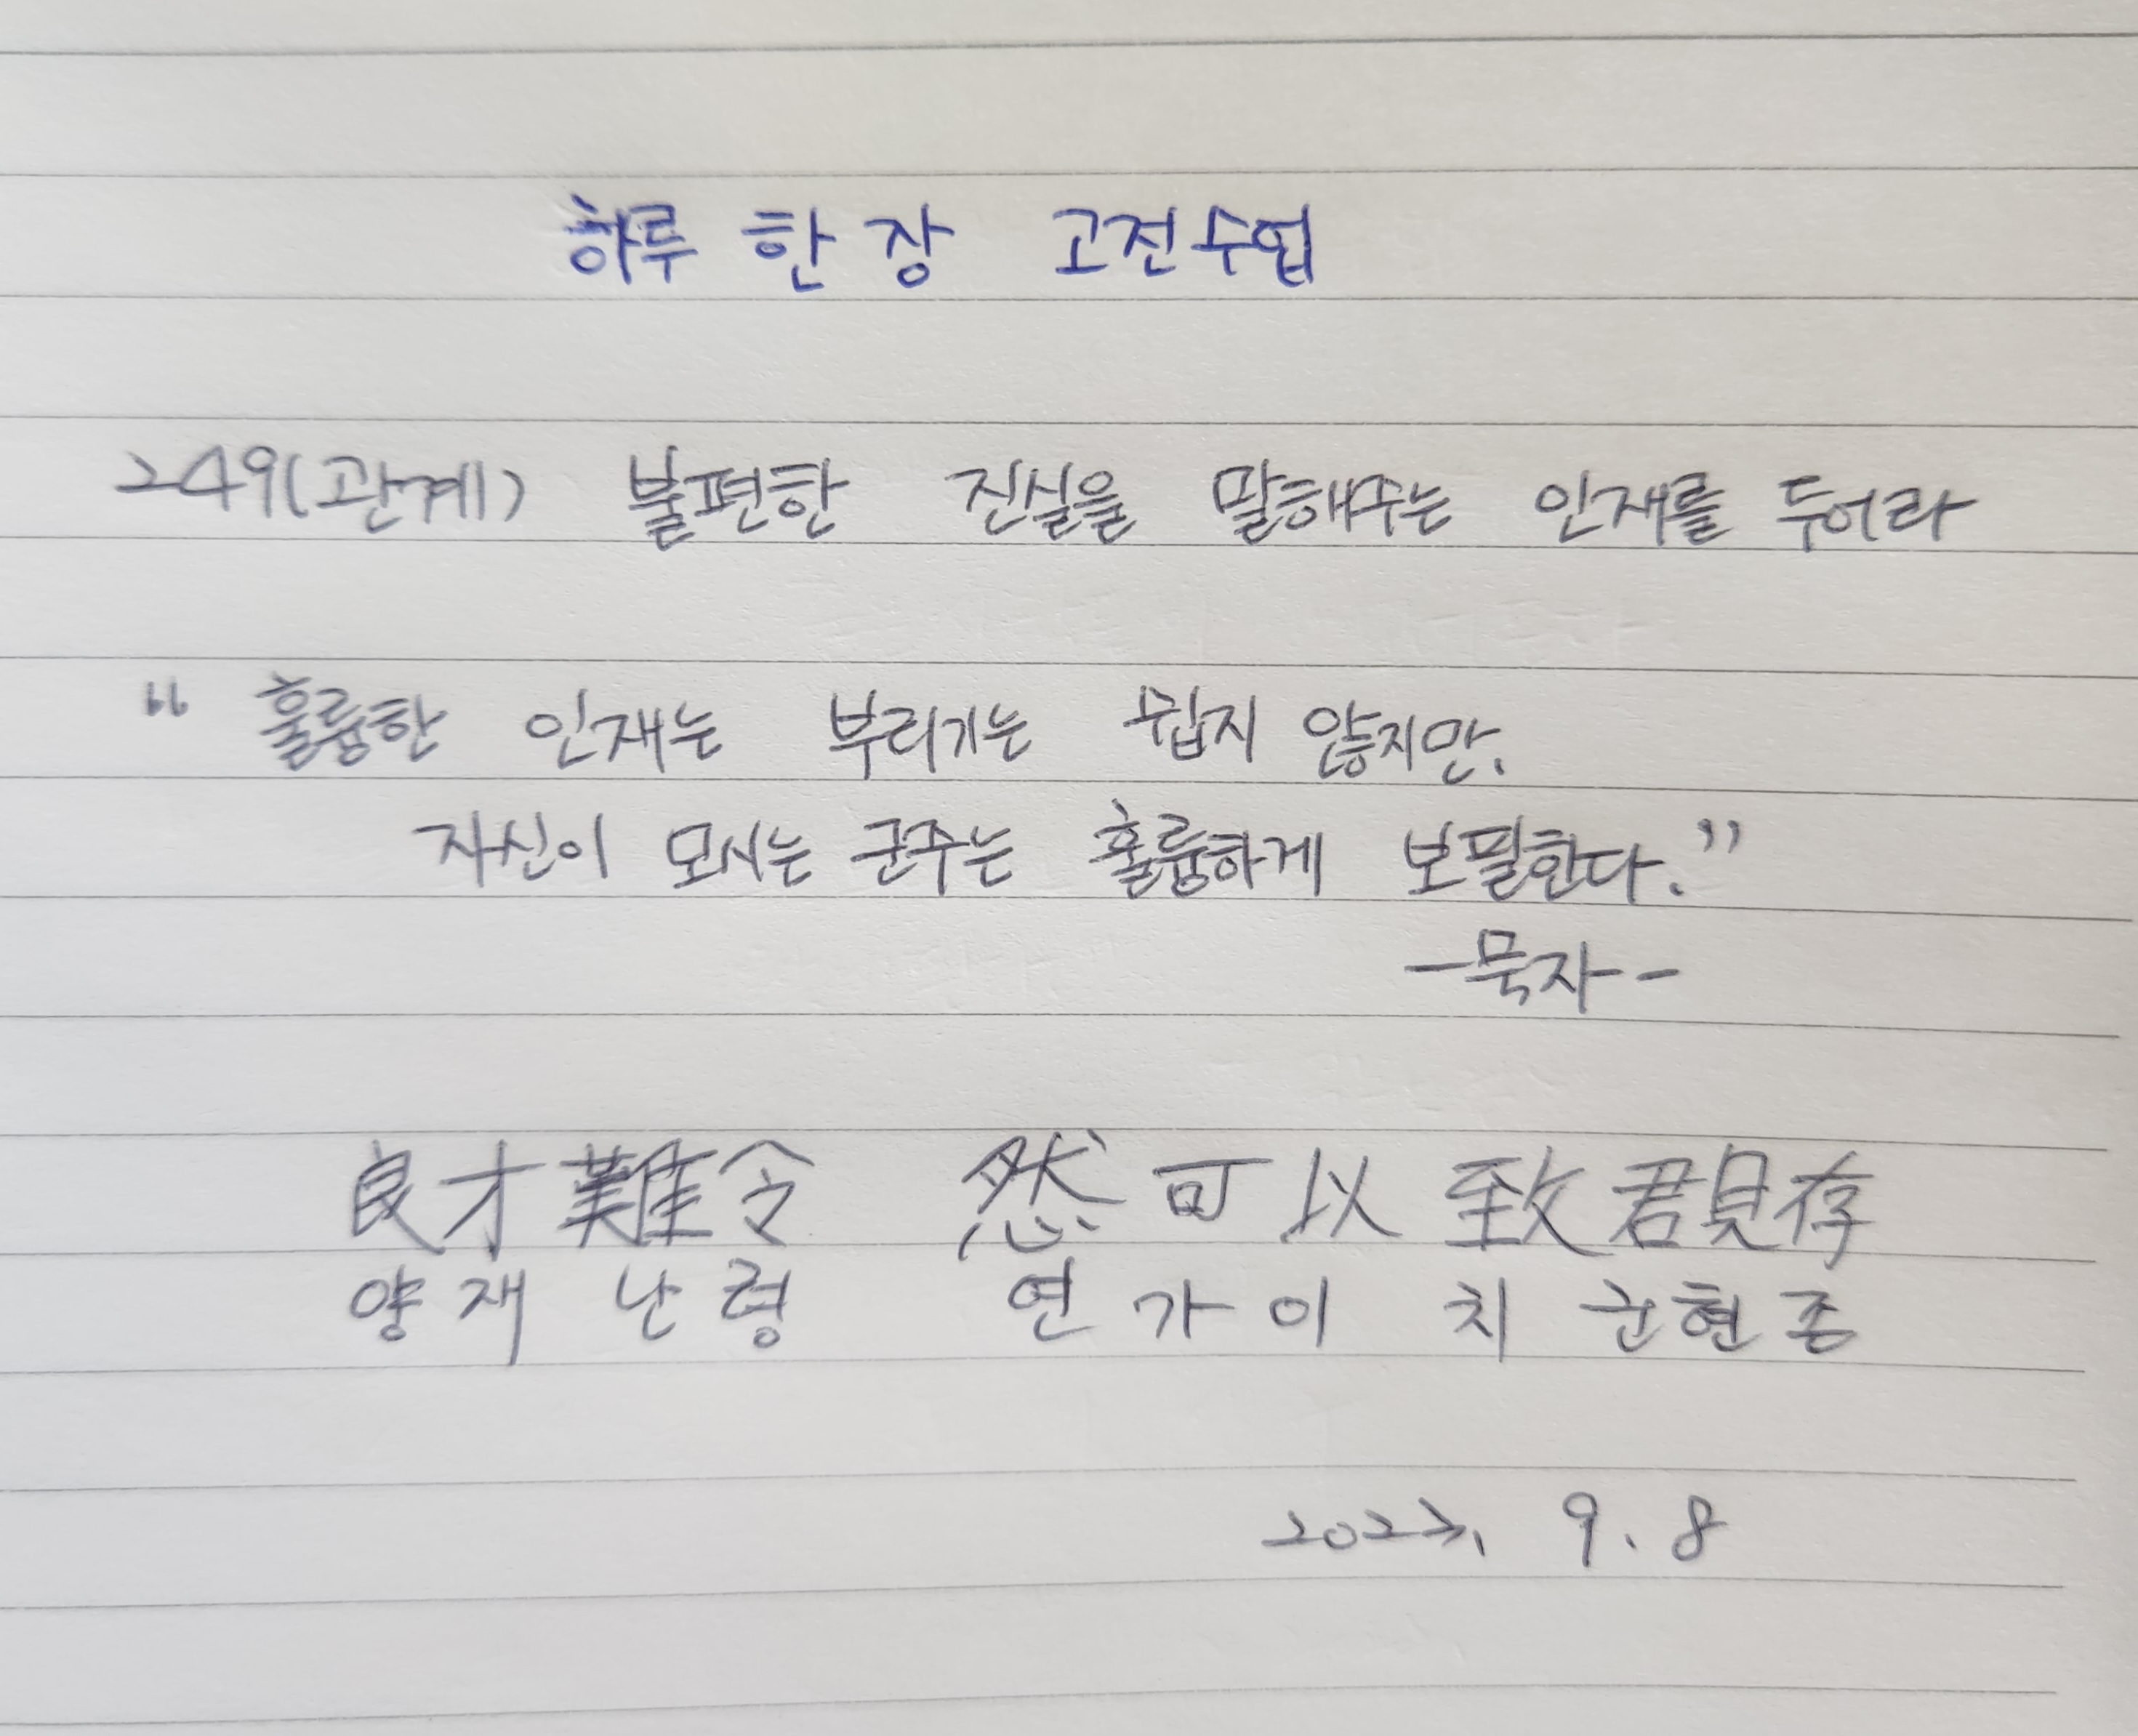 하루 한 장 고전수업
249(관계) 불편한 진실을 말해주는 인재를 두어라
“ 훌륭한 인재는 부리기는 쉽지 않지만,
자신이 모시는 군주는 훌륭하게 보필한다.”
-묵자-
良才難令 然可以致君見存
양재난령 연가이 치군현존
9.8